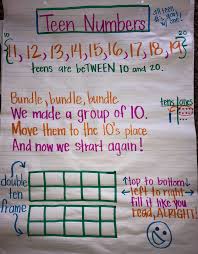 Teen Numbers
all teens
start w/
one!
10
20
11, 12, 13, 14, 15, 16, 17, 18, 19
teens are beTWEEN 10 and 20.
Bundle, bundle, bundle
We made a group of 10.
Move them to the 10's place
And now we strart again!
tens ones
double
ten
frame
top to bottom
left to right
fill it like you
read, ALRIGHT!